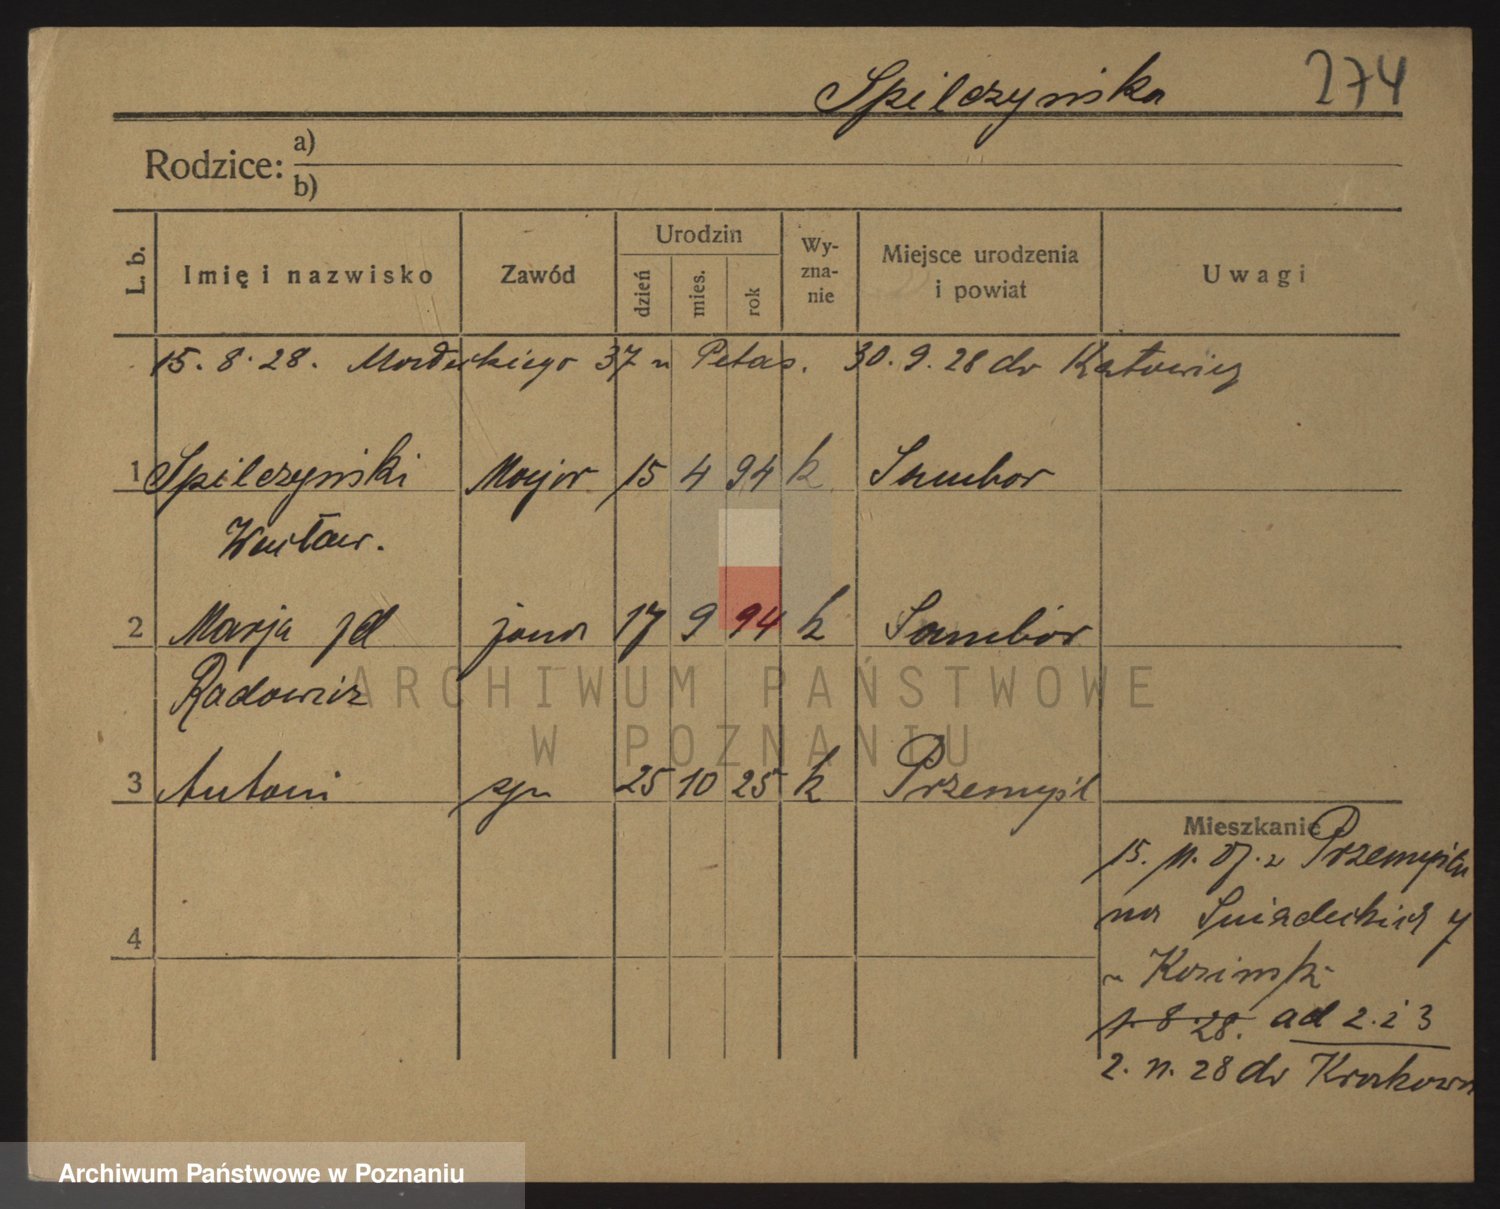 Spilczyńska 274
Rodzice: a)
b)
L. b. Imię i nazwisko Zawód Urodzin dzień mies. rok Wy-zna-nie Miejsce urodzenia i powiat Uwagi
15. 8. 28. 37 u Petas. 30. 9. 28 do Katowic
1 Spilczyński Major 15 4 94 k Sambor
Wacław.
2 Marja żona 17 9 94 k Sambór
Radowicz
3 Antoni syn 25 10 25 k Przemyśl
Mieszkanie
15. 11. 27. z Przemyśla
na Śniadeckich 7
u
4
1. 8. 28. ad 2. i 3
2. 11. 28 do Krakowa
ARCHIWUM PAŃSTWOWE
W POZNANIU
Archiwum Państwowe w Poznaniu